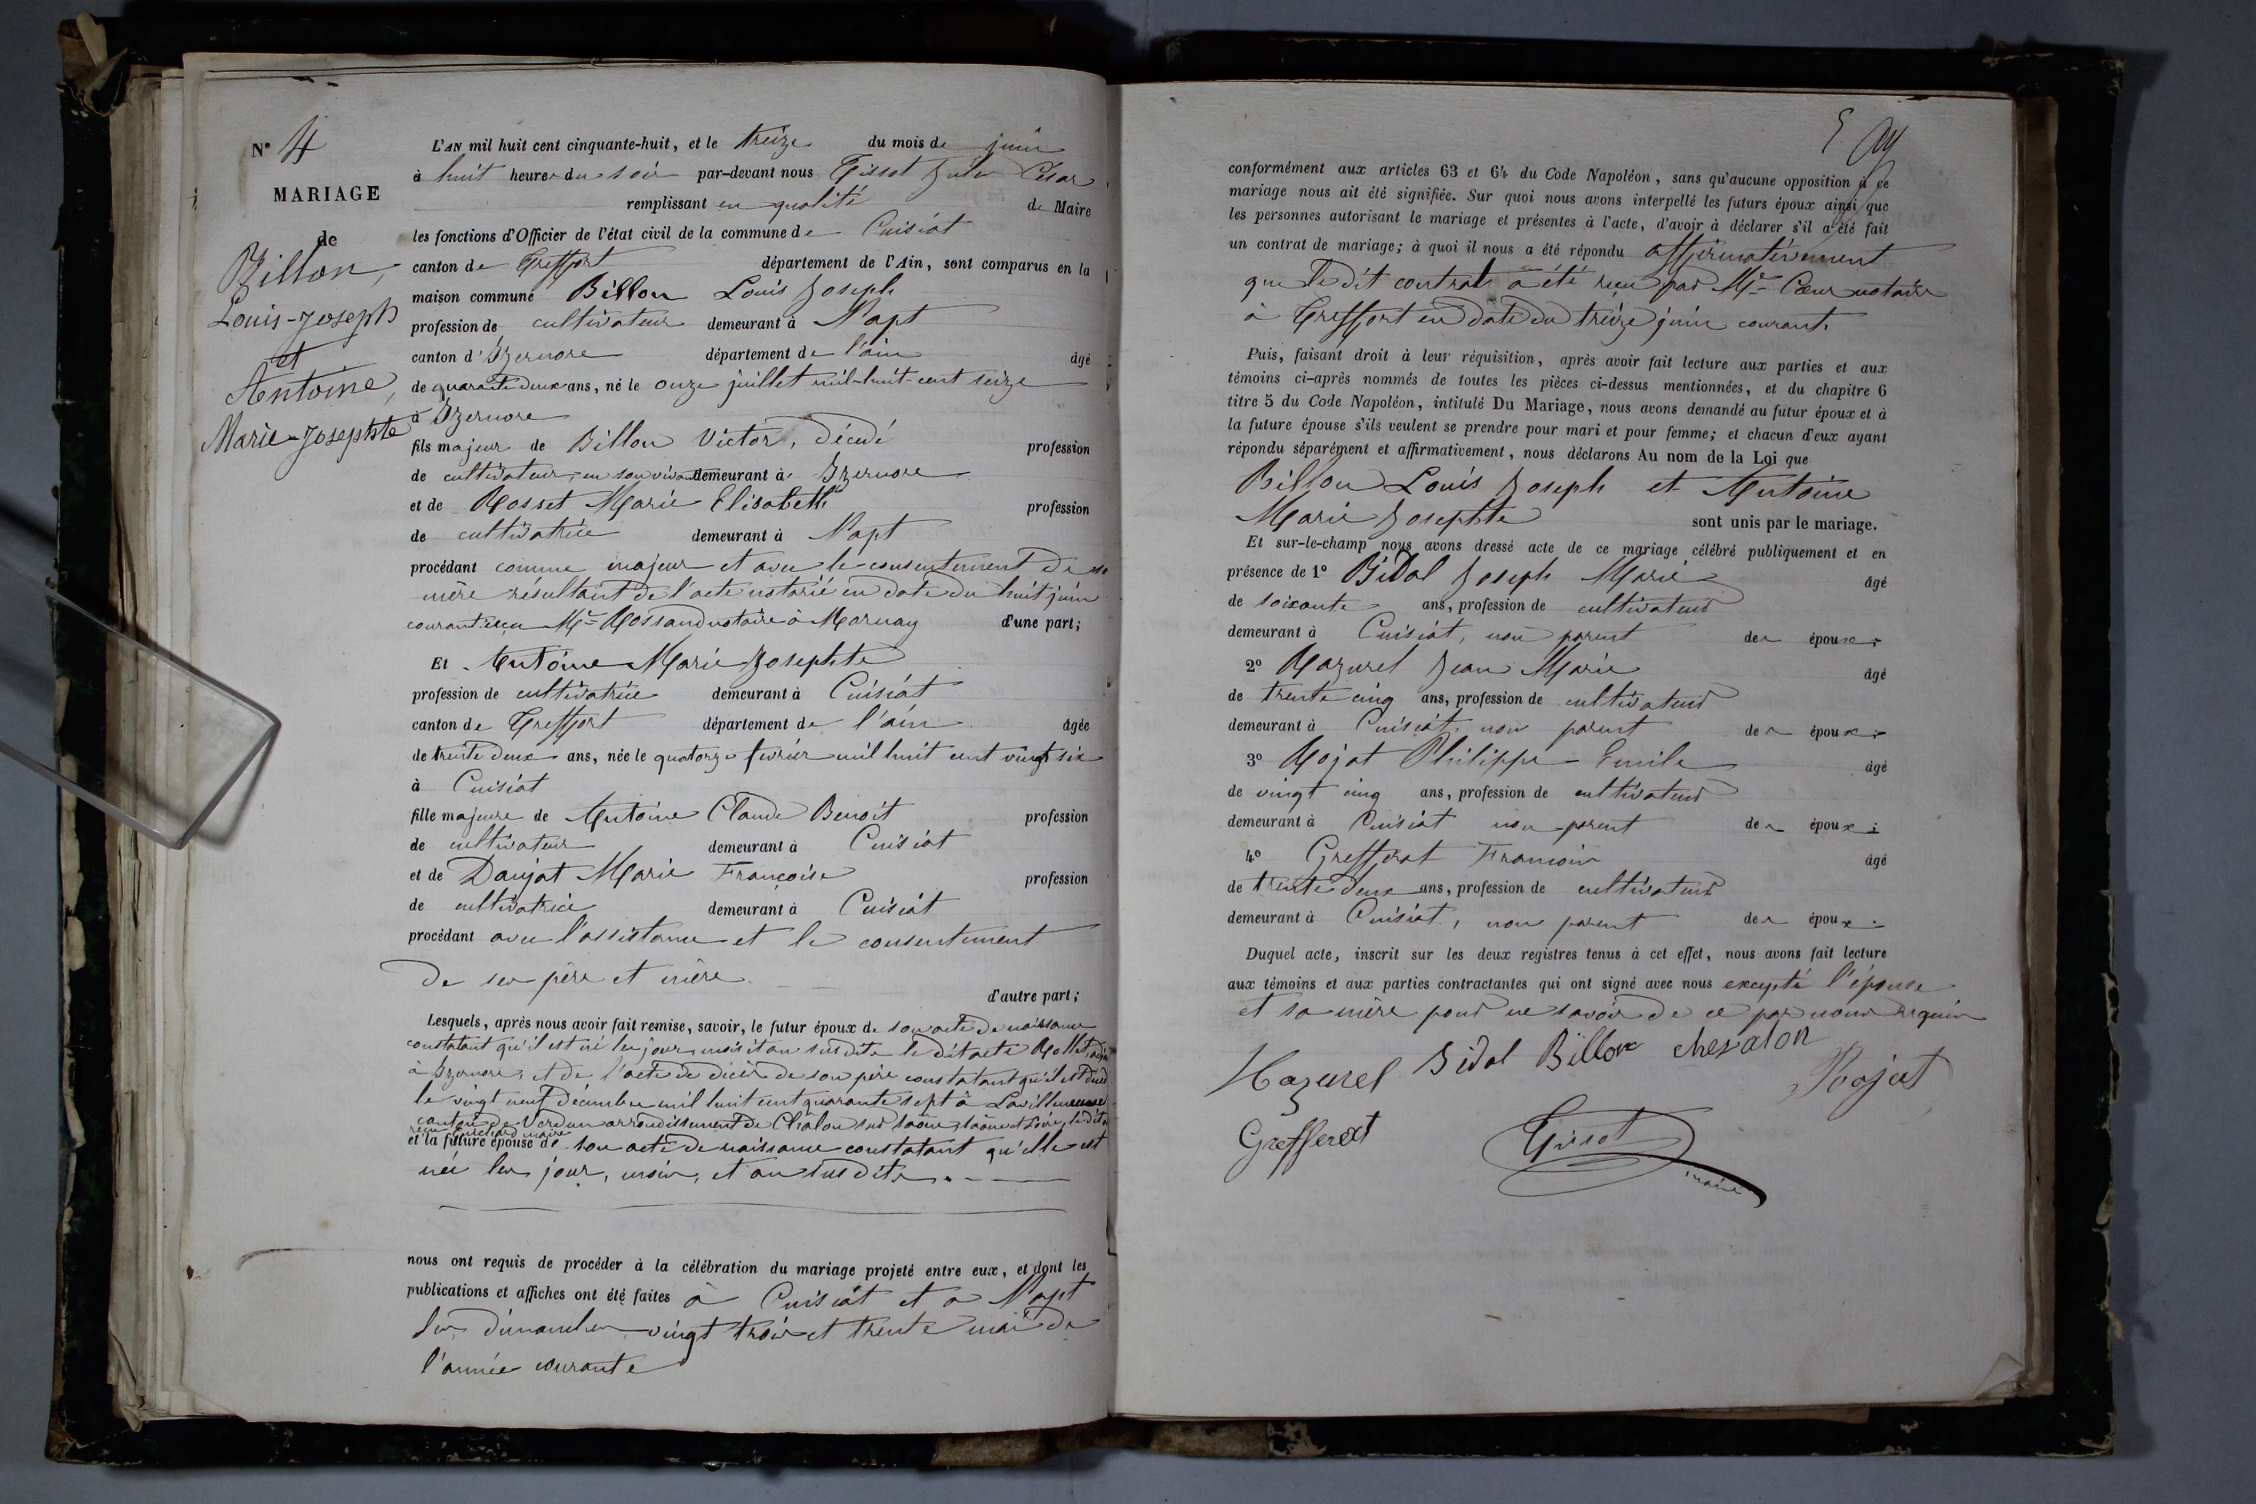 N° 4
MARIAGE
de
Billon,
Louis-Joseph
et
Antoine,
Marie-Josephte
L'AN mil huit cent cinquante-huit, et le treize du mois de juin
à huit heures du soir par-devant nous Tissot Jules César
remplissant en qualité de Maire
les fonctions d'Officier de l'état civil de la commune de Cuisiat
canton de Treffort département de l'Ain, sont comparus en la
maison commune Billon Louis Joseph
profession de cultivateur demeurant à Napt
canton d'Izernore département de l'ain âgé
de quarante deux ans, né le onze juillet mil-huit-cent seize
à Izernore
fils majeur de Billon Victor, décédé profession
de cultivateur, en son vivant demeurant à Izernore
et de Rosset Marie Elisabeth profession
de cultivatrice demeurant à Napt
procédant comme majeur et avec le consentement de sa
mère résultant de l'acte notarié en date du huit juin
courant reçu Me Mossand notaire à Mornay d'une part;
Et Antoine Marie Josephte
profession de cultivatrice demeurant à Cuisiat
canton de Treffort département de l'ain âgée
de trente deux ans, née le quatorze fevrier mil huit cent vingt six
à Cuisiat
fille majeure de Antoine Claude Benoit profession
de cultivateur demeurant à Cuisiat
et de Daujat Marie Françoise profession
de cultivatrice demeurant à Cuisiat
procédant avec l'assistance et le consentement
de ses père et mère.
d'autre part;
Lesquels, après nous avoir fait remise, savoir, le futur époux de son acte de naissance
constatant qu'il est né les jour, mois et an susdits le dit acte
à Izernore, et de l'acte de décès de son père constatant qu'il est décédé
le vingt neuf décembre mil huit cent quarante sept à
canton de Verdun arrondissement de Chalon sur Saône, Saône et Loire, le dit
reçu maire
et la future épouse de son acte de naissance constatant qu'elle est
née les jour, mois, et an susdits.
nous ont requis de procéder à la célébration du mariage projeté entre eux, et dont les
publications et affiches ont été faites à Cuisiat et à Napt
les dimanches vingt trois et trente mai de
l'année courante
5
conformément aux articles 63 et 64 du Code Napoléon, sans qu'aucune opposition à ce
mariage nous ait été signifiée. Sur quoi nous avons interpellé les futurs époux ainsi que
les personnes autorisant le mariage et présentes à l'acte, d'avoir à déclarer s'il a été fait
un contrat de mariage; à quoi il nous a été répondu affirmativement
que le dit contrat a été reçu par Me Cœur notaire
à Treffort en date du treize juin courant.
Puis, faisant droit à leur réquisition, après avoir fait lecture aux parties et aux
témoins ci-après nommés de toutes les pièces ci-dessus mentionnées, et du chapitre 6
titre 5 du Code Napoléon, intitulé Du Mariage, nous avons demandé au futur époux et à
la future épouse s'ils veulent se prendre pour mari et pour femme; et chacun d'eux ayant
répondu séparément et affirmativement, nous déclarons Au nom de la Loi que
Billon Louis Joseph et Antoine
Marie Josephte sont unis par le mariage.
Et sur-le-champ nous avons dressé acte de ce mariage célébré publiquement et en
présence de 1° Bidal Joseph Marie âgé
de soixante ans, profession de cultivateur
demeurant à Cuisiat, non parent des époux;
2° Mazurel Jean Marie âgé
de trente cinq ans, profession de cultivateur
demeurant à Cuisiat, non parent des époux;
3° Rojat Philippe Emile âgé
de vingt cinq ans, profession de cultivateur
demeurant à Cuisiat non parent des époux;
4° Grefferat François âgé
de trente deux ans, profession de cultivateur
demeurant à Cuisiat, non parent des époux.
Duquel acte, inscrit sur les deux registres tenus à cet effet, nous avons fait lecture
aux témoins et aux parties contractantes qui ont signé avec nous excepté l'épouse
et sa mère pour ne savoir de ce par nous requis
Mazurel Bidal Billon chevalon Rojat
Grefferat Tissot
maire